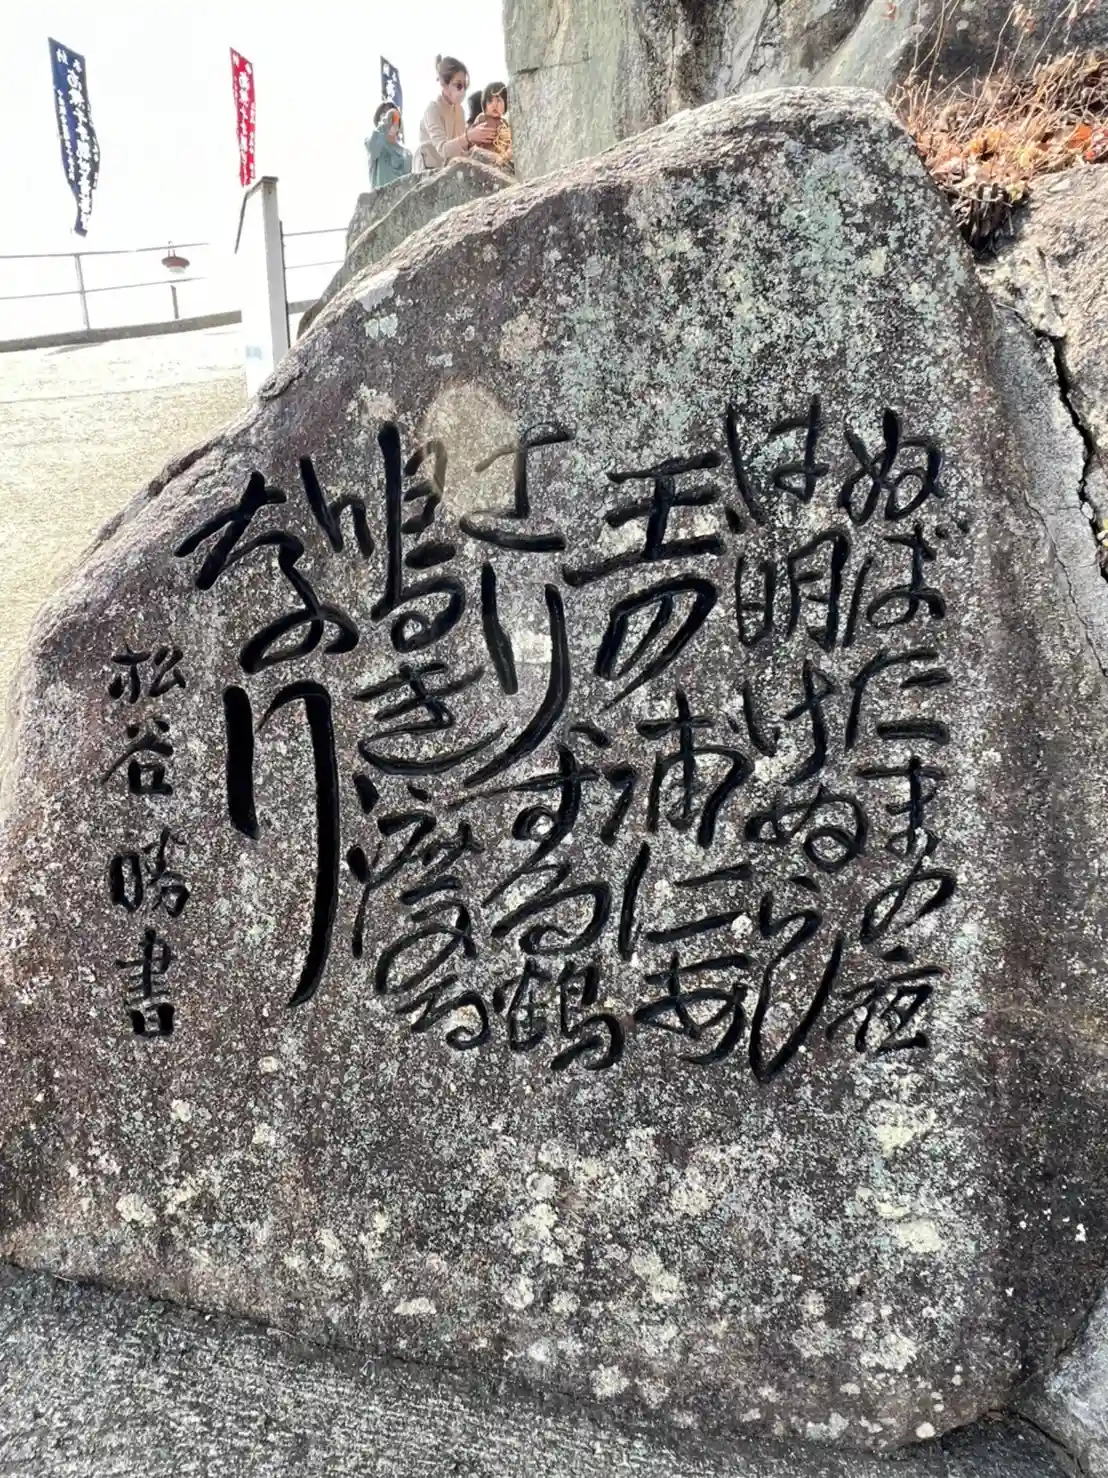 ぬばたまの夜
は明けぬらし
玉の浦にあ
さりする鶴
鳴き渡る
なり
松谷勝書